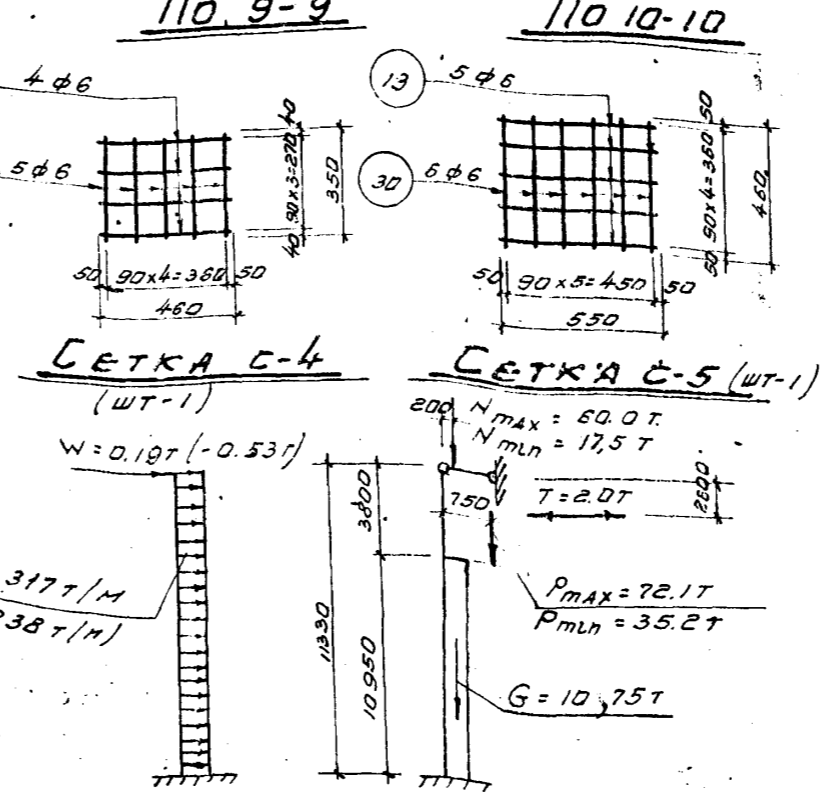 ПО. 9-9
ПО 10-10
4 ф6
5 ф6
40
90x3=270
40
350
50
90x4=360
50
460
13
5 ф6
30
6 ф6
50
90x4=360
50
460
50
90x5=450
50
550
СЕТКА С-4
(ШТ-1)
СЕТКА С-5 (ШТ-1)
W=0.19т (-0.53т)
317 т/м
238 т/м)
200
Nmax = 60.0 т.
Nmin = 17,5 т
750
T=2.0т
2600
3800
11330
10950
Pmax=72.1т
Pmin=35.2т
G=10,75т